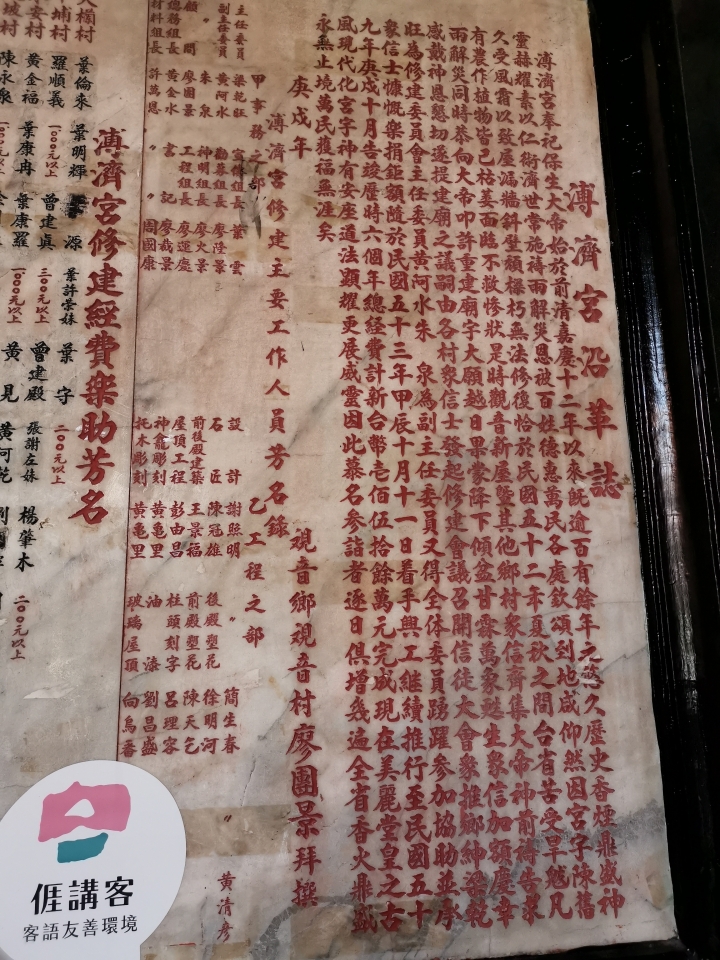 溥濟宮沿革誌
溥濟宮奉祀保生大帝始於前清嘉慶十二年以來既逾百有餘年之悠久歷史香煙鼎盛神
靈赫耀素以仁術濟世常施禱雨解災恩被百姓德惠萬民各處欽頌到地咸仰然因宮宇陳舊
久受風霜以致屋漏牆斜壁頹樑朽無法修復恰於民國五十二年夏秋之間台省苦受旱魃凡
有農作植物皆已枯萎面臨不救慘狀是時觀音新屋暨其他鄉村眾信齊集大帝神前禱告求
雨解災同時恭向大帝叩許重建廟宇大願越日果蒙降下傾盆甘霖萬家甦生眾信加額慶幸
感戴神恩懇切遂提建廟之議嗣由各村眾信士發起修建會議召開信徒大會眾推鄉紳梁乾
旺為修建委員會主任委員黃河水朱泉為副主任委員又得全体委員踴躍參加協助並承
眾信士慷慨樂捐鉅額隨於民國五十三年甲辰十月十一日着手興工繼續推行至民國五十
九年庚戌十月告竣歷時六個年總経費計新台幣壹佰伍拾餘萬元完成現在美麗堂皇之古
風現代化宮宇神有安座道法顯耀更展威靈因此慕名參詣者逐日俱增幾遍全省香火鼎盛
永無止境萬民獲福無涯矣
庚戌年
觀音鄉觀音村廖團景拜撰
溥濟宮修建主要工作人員芳名錄
甲事務之部
主任委員 梁乾旺
副主任委員 黃河水
〃 朱泉
顧問 廖團景
總務組長 黃金水
材料組長 許萬恩
宣傳組長 葉雲
勸募組長 廖陞景
神明組長 廖火景
工程組長 廖運處
言記 廖裁景
〃 周國康
乙工程之部
設計 謝照明
石匠 陳冠雄
前後殿建築 王景福
屋頂工程 彭由昌
神龕彫刻 黃亀里
托木彫刻 黃亀里
〃 簡生春
後殿塑花 徐明河
前殿塑花 陳天乞
柱頭刻字 呂理容
油漆 劉昌盛
玻璃屋頂 向鳥番
〃 黃清彥
溥濟宮修建經費樂助芳名
葉倫來 葉明輝 源 葉許崇妹 葉守
羅順義 一○○元以上 曾建貞 三○○元以上 曾建殿 二○○元以上
黃金福 葉康冉 葉康羅 一○○元以上 黃見 張謝左妹 楊肇木 二○○元以上
陳永泉 黃河乾
埔村
安村
坡村
𠊎講客
客語友善環境